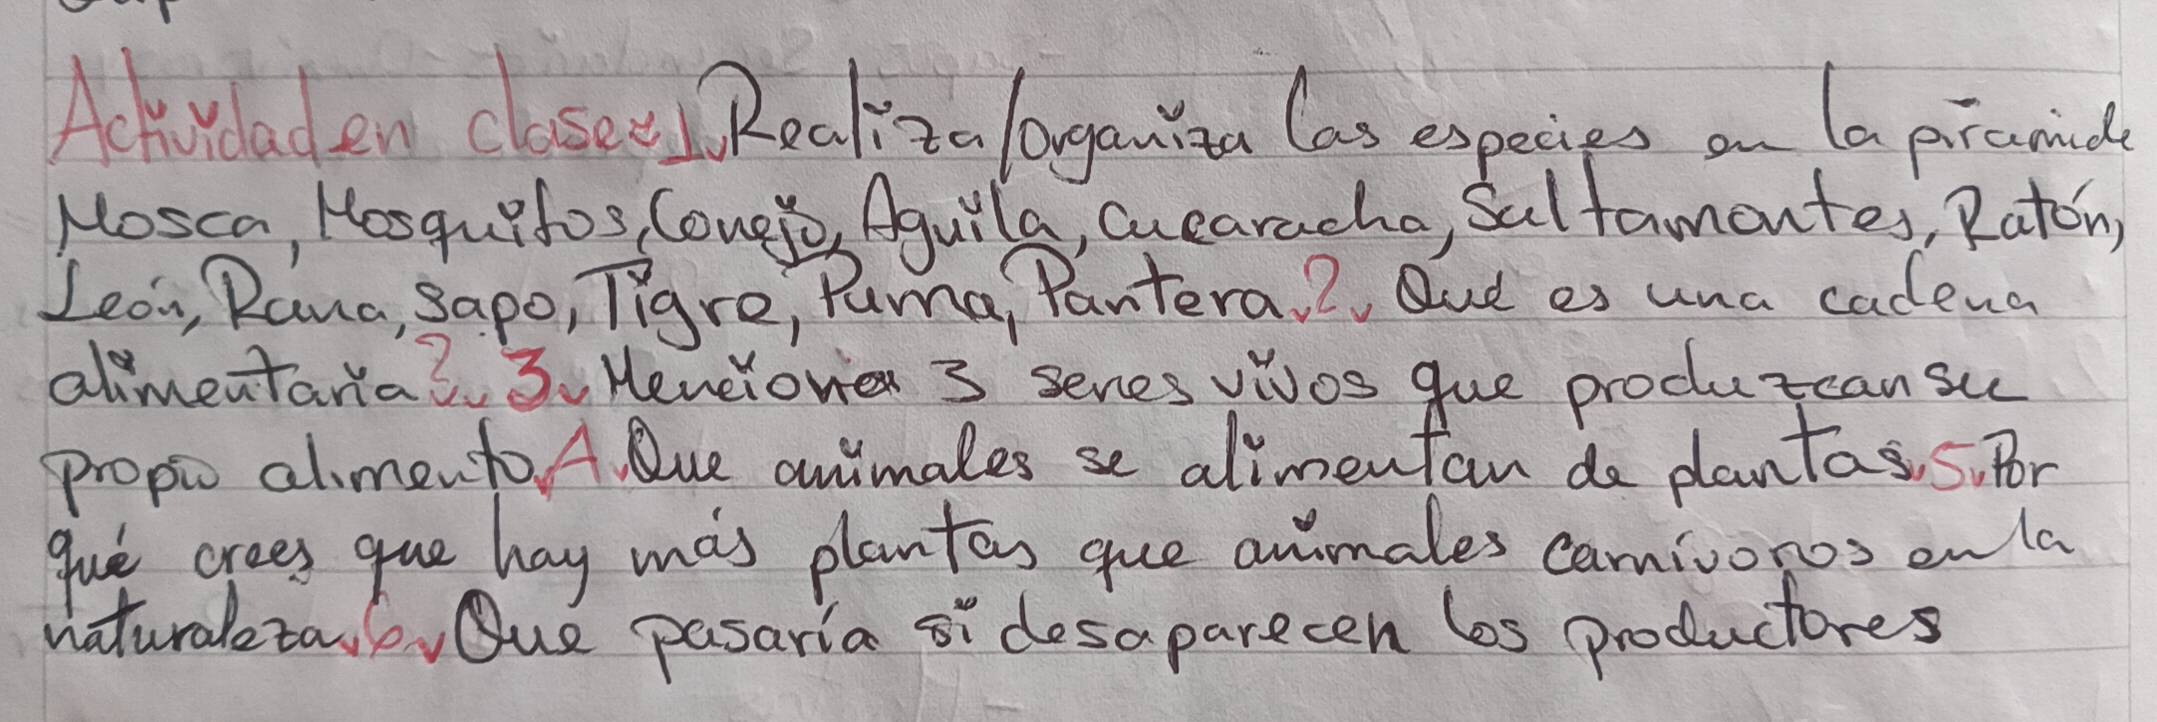 Actividad en clase: 1. Realiza/organiza las especies en la pirámide
Mosca, Mosquitos, Conejo, Aguila, Cucaracha, Saltamontes, Ratón,
León, Rana, Sapo, Tigre, Puma, Pantera. 2. Qué es una cadena
alimentaria?. 3. Menciona 3 seres vivos que produzcan su
propio alimento. 4. Que animales se alimentan de plantas. 5. Por
qué crees que hay más plantas que animales carnívoros en la
naturaleza. 6. Que pasaría si desaparecen los productores